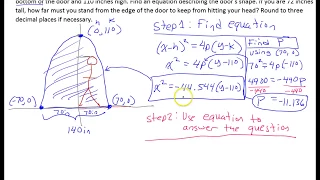 bottom of the door and 110 inches high. Find an equation describing the door's shape. If you are 72 inches
tall, how far must you stand from the edge of the door to keep from hitting your head? Round to three
decimal places if necessary.
h k
(0,110)
(-70,0)
(70,0)
70in
70in
140in
Step1: Find equation
(x-h)²=4p(y-k)
x²=4p(y-110)
x²=-44.544(y-110)
Find P
using (70,0)
70²=4p(-110)
4900=-440p
-440 -440
P=-11.136
Step2: Use equation to
answer the question